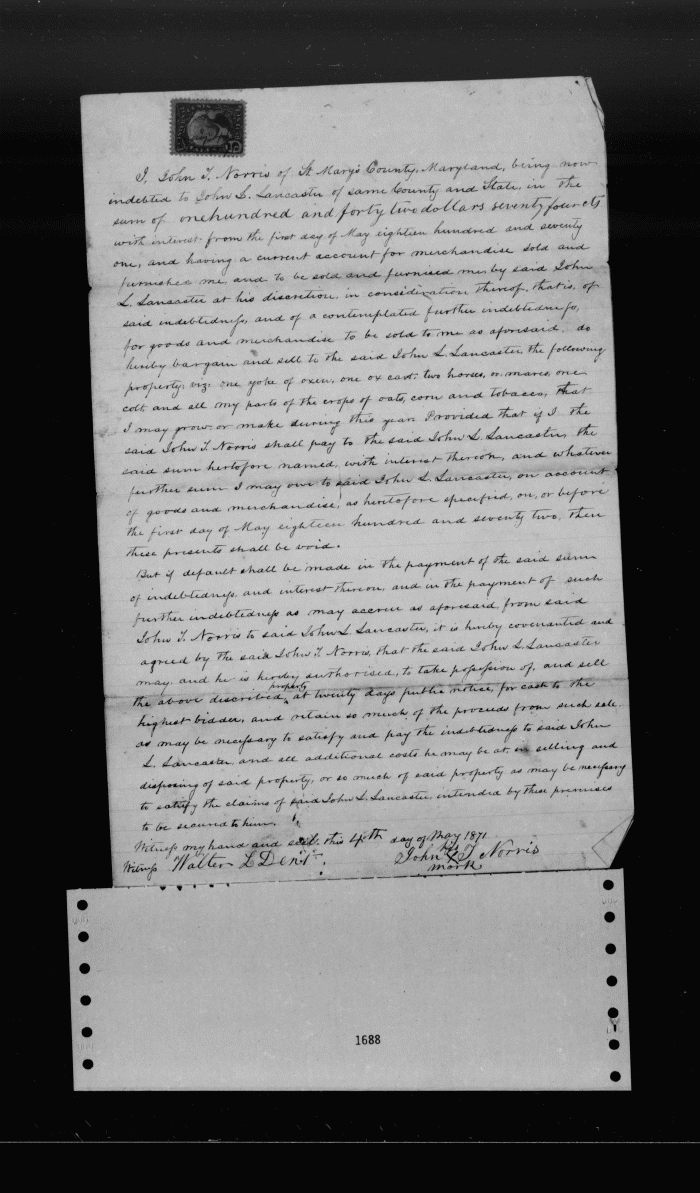 I, John T. Norris of St Mary's County, Maryland, being now
indebted to John L. Lancaster of same County and State, in the
sum of onehundred and forty two dollars seventy four cts
with interest from the first day of May eighteen hundred and seventy
one, and having a current account for merchandise sold and
furnished me, and to be sold and furnised me, by said John
L. Lancaster at his discretion, in consideration thereof, that is, of
said indebtedness, and of a contemplated further indebtedness,
for goods and merchandise to be sold to me as aforisaid, do
hereby bargain and sell to the said John L. Lancaster, the following
property: viz: one yoke of oxen, one ox cart, two horses, or mares, one
colt and all my parts of the crops of oats, corn and tobacco, that
I may grow or make during this year. Provided that if I the
said John T. Norris shall pay to the said John L. Lancaster, the
said sum hertofore named, with interest thereon, and whatever
further sum I may owe to said John L. Lancaster, on account
of goods and merchandise, as heretofore specified, on, or before
the first day of May eighteen hundred and seventy two, then
these presents shall be void.
But if default shall be made in the payment of the said sum
of indebtedness, and interest thereon, and in the payment of such
further indebtedness as may accrue as aforesaid, from said
John T. Norris to said John L Lancaster, it is hereby covenanted and
agreed by the said John T. Norris, that the said John L. Lancaster
may, and he is hereby authorised, to take possession of, and sell
the above described property, at twenty days public notice, for cash to the
highest bidder, and retain so much of the proceeds from such sale
as may be necessary to satisfy and pay the indebtedness to said John
L. Lancaster, and all additional costs he may be at, in selling and
disposing of said property, or so much of said property as may be necessary
to satisfy the claims of said John L. Lancaster, intended by these premises
to be secured to him.
Witness my hand and seal, this 4th day of May 1871
Witness Walter L Dent. John his X T Norris
mark
1688